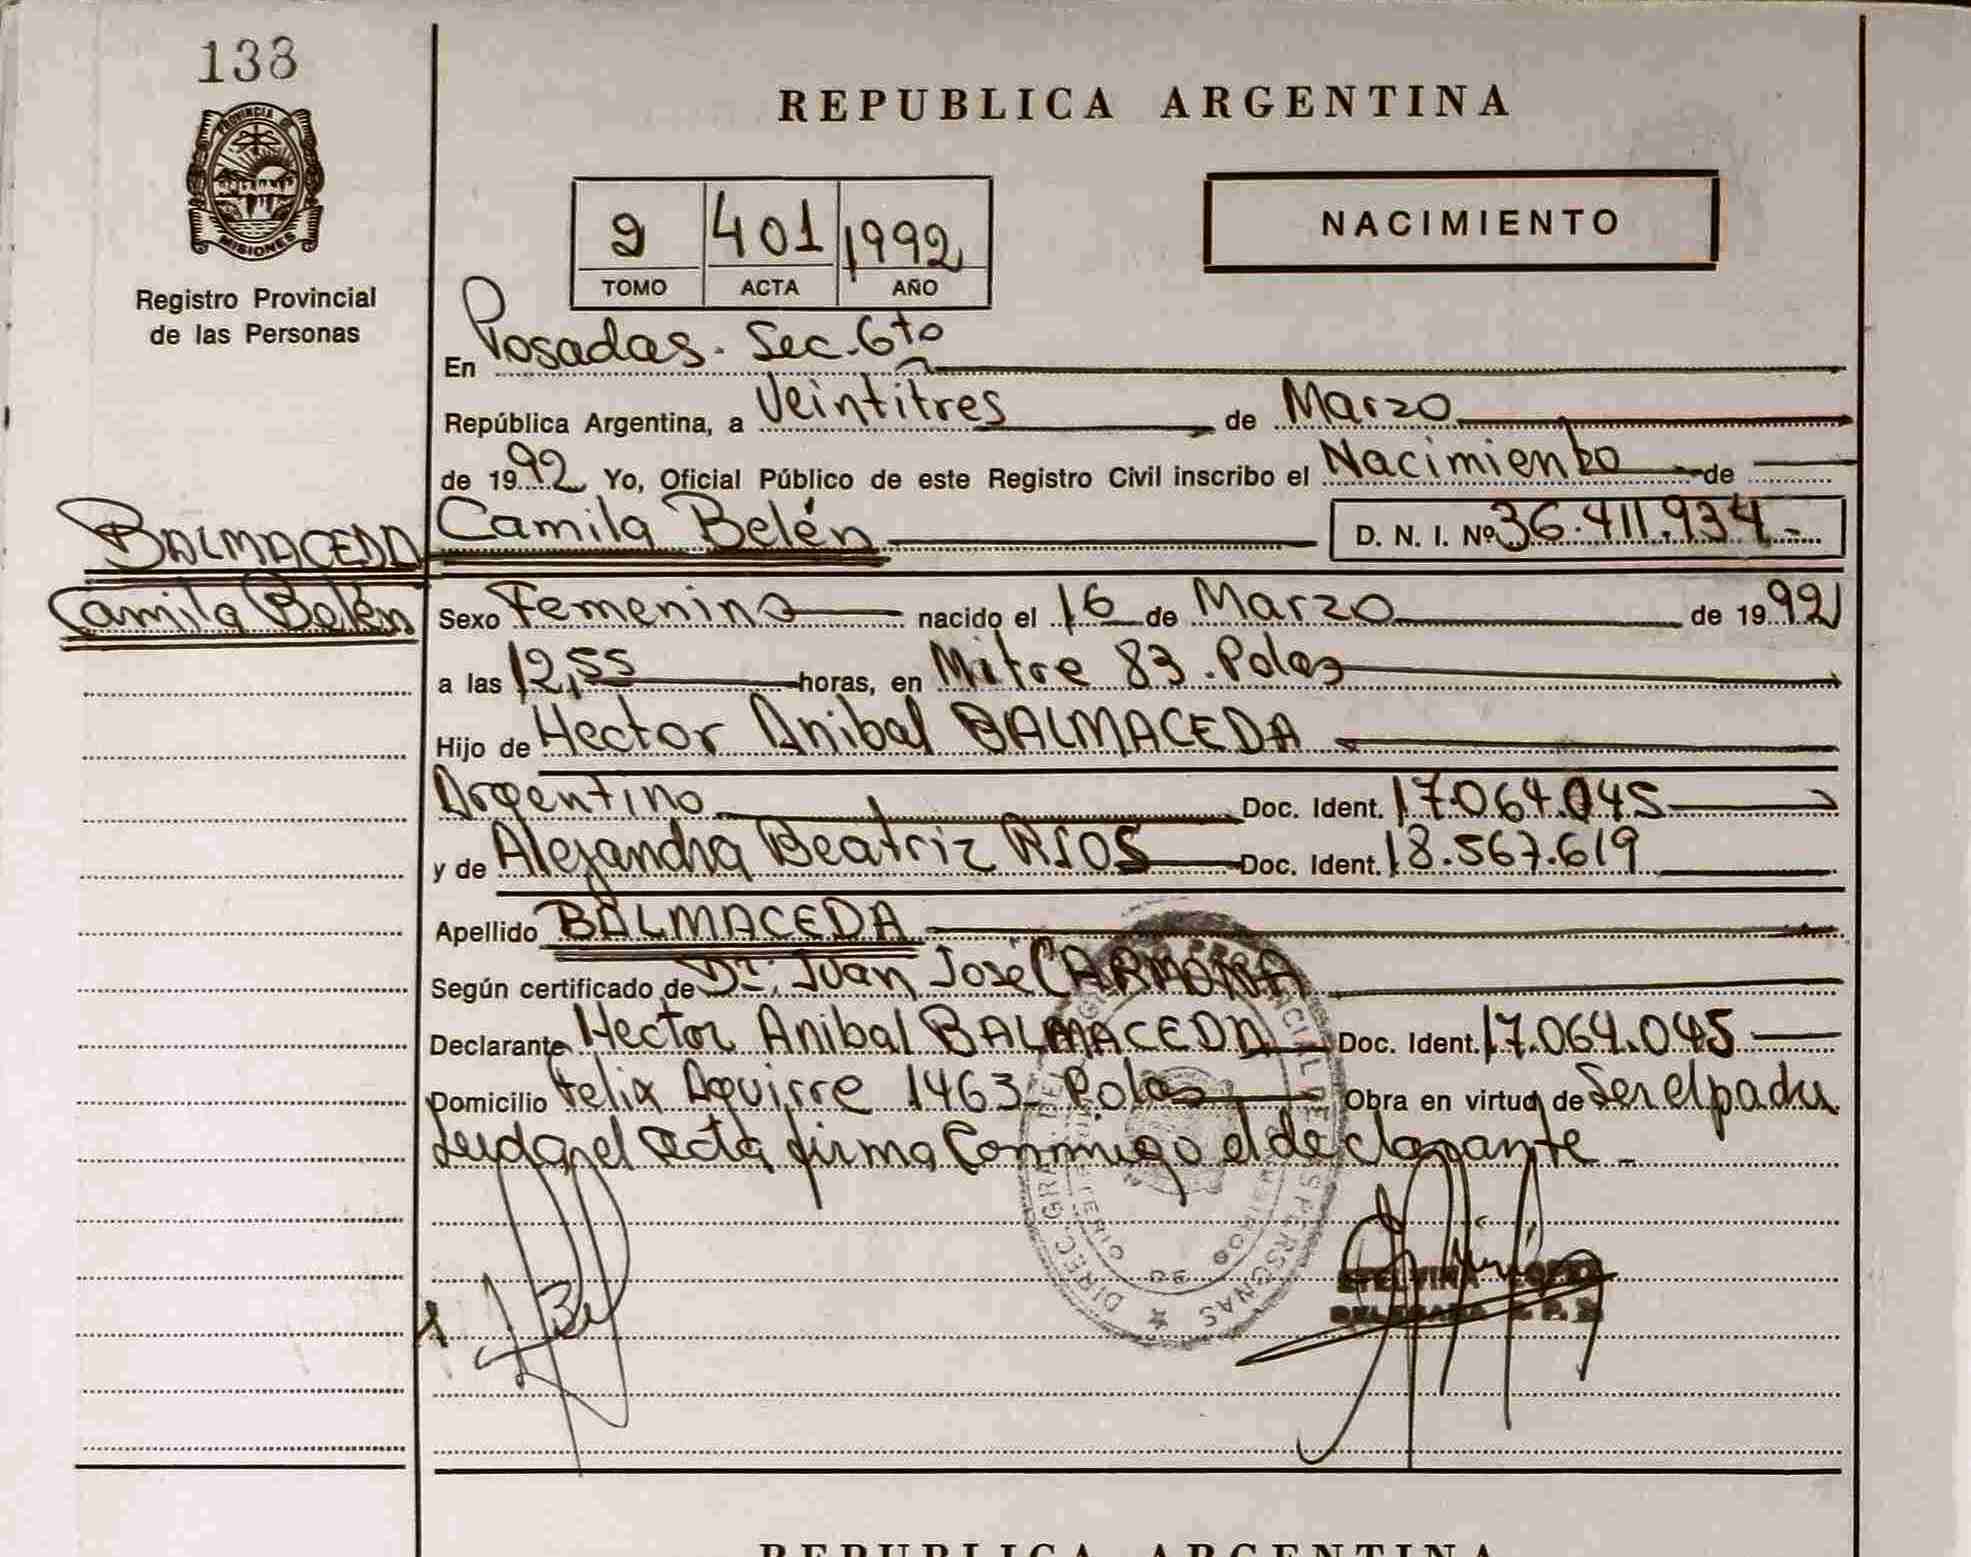 138
PROVINCIA DE
MISIONES
Registro Provincial
de las Personas
BALMACEDA
Camila Belén
REPUBLICA ARGENTINA
NACIMIENTO
2 401 1992
TOMO ACTA AÑO
En Posadas. Sec. 6to
República Argentina, a Veintitres de Marzo
de 1992 Yo, Oficial Público de este Registro Civil inscribo el Nacimiento de
Camila Belén D. N. I. Nº 36.411.934.-
Sexo Femenino nacido el 16 de Marzo de 1992
a las 12,55 horas, en Mitre 83. Pdas
Hijo de Hector Anibal BALMACEDA
Argentino Doc. Ident. 17.064.045
y de Alejandra Beatriz RIOS Doc. Ident. 18.567.619
Apellido BALMACEDA
Según certificado de Dr. Juan José CARMONA
Declarante Hector Anibal BALMACEDA Doc. Ident. 17.064.045
Domicilio Felix Aguirre 1463- Pdas Obra en virtud de Ser el padre
Leida el acta firma Conmigo el declarante -
REPUBLICA ARGENTINA